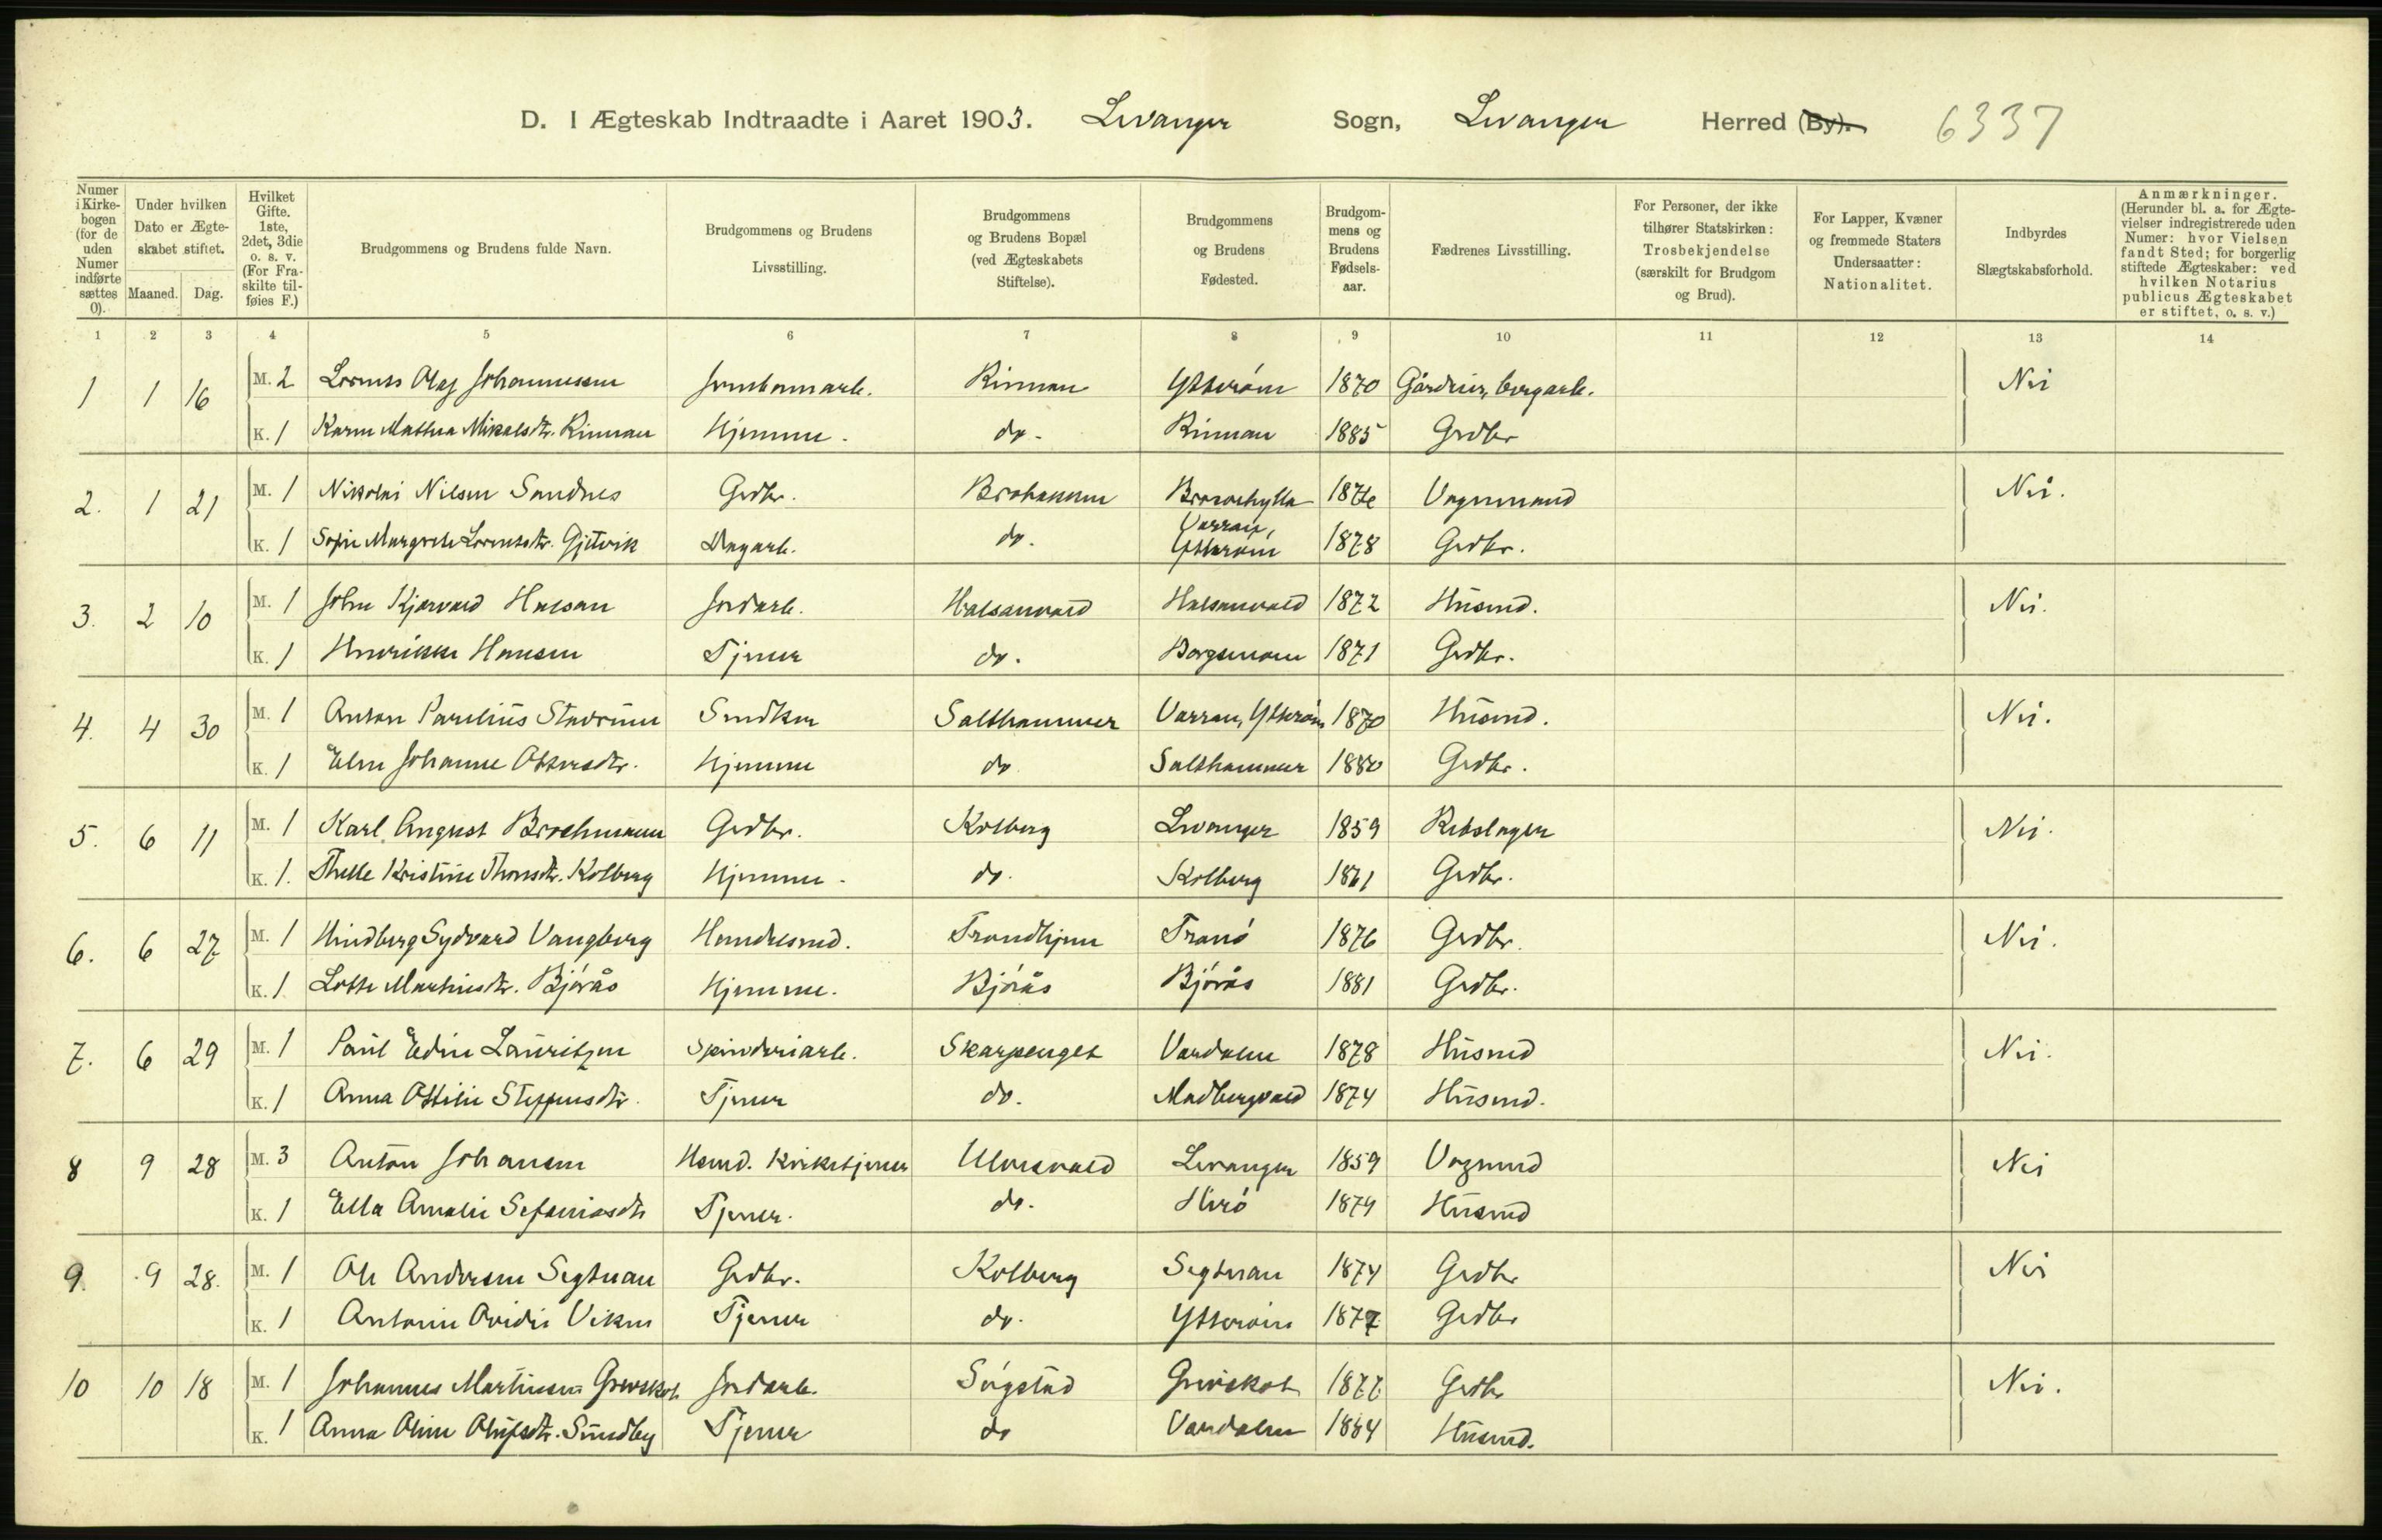 D. I Ægteskab Indtraadte i Aaret 1903. Levanger Sogn, Levanger Herred (By). 6337
Numer i Kirkebogen (for de uden Numer indførte sættes 0). Under hvilken Dato er Ægteskabet stiftet. Maaned. Dag. Hvilket Gifte. 1ste, 2det, 3die o. s. v. (For Fraskilte tilføies F.) Brudgommens og Brudens fulde Navn. Brudgommens og Brudens Livsstilling. Brudgommens og Brudens Bopæl (ved Ægteskabets Stiftelse). Brudgommens og Brudens Fødested. Brudgommens og Brudens Fødselsaar. Fædrenes Livsstilling. For Personer, der ikke tilhører Statskirken: Trosbekjendelse (særskilt for Brudgom og Brud). For Lapper, Kvæner og fremmede Staters Undersaatter: Nationalitet. Indbyrdes Slægtskabsforhold. Anmærkninger. (Herunder bl. a. for Ægtevielser indregistrerede uden Numer: hvor Vielsen fandt Sted; for borgerlig stiftede Ægteskaber: ved hvilken Notarius publicus Ægteskabet er stiftet, o. s. v.)
1 2 3 4 5 6 7 8 9 10 11 12 13 14
1 1 16 M. 2 Lorents Olaf Johannessen Jernbanearb. Rinnan Ytterøen 1870 Gårdeier, bergarb. Nei
K. 1 Karen Mathea Mikalsdtr. Rinnan Hjemme. do. Rinnan 1885 Grdbr
2. 1 21 M. 1 Nikolai Nilsen Sandnes Grdbr. 1876 Vognmand Nei.
K. 1 Sofie Margrete Lorentsdtr. Gjetvik Dagarb. do. Verran, Ytterøen 1878 Grdbr.
3. 2 10 M. 1 John Kjervald Halsan Jordarb. Halsanvald Halsanvald 1872 Husmd. Nei.
K. 1 Henrikke Hansen Tjener do. Borgsmoen 1871 Grdbr.
4. 4 30 M. 1 Anton Parelius Stavrum Smedken Salthammer Verran, Ytterøen 1870 Husmd. Nei.
K. 1 Elen Johanne Ottersdtr. Hjemme do Salthammer 1880 Grdbr.
5. 6 11 M. 1 Karl August Brochmann Grdbr. Kolberg Levanger 1859 Rebslager Nei.
K. 1. Thelle Kristine Thonsdtr. Kolberg Hjemme. do. Kolberg 1861 Grdbr.
6. 6 27 M. 1 Hindberg Sydvard Vangberg Handelsmd. Trondhjem Tranø 1876 Grdbr. Nei.
K. 1 Lotte Martinsdtr. Bjørås Hjemme. Bjørås Bjørås 1881 Grdbr.
7. 6 29 M. 1 Paul Edin Lauritzen Spinderiarb. Skarpenget Værdalen 1878 Husmd Nei.
K. 1 Anna Ottilie Steffensdtr. Tjener do. Madbergvald 1874 Husmd.
8 9 28 M. 3 Anton Johansen Hsmd. Kirketjener Ulvesvald Levanger 1859 Vognmd Nei
K. 1 Ella Amalie Sefaniasdtr Tjener. do. Hirø 1874 Husmd
9. 9 28. M. 1 Ole Andersen Segtnan Grdbr. Kolberg Segtnan 1874 Grdbr Nei
K. 1 Antonie Ovidie Viken Tjener do. Ytterøen 1877 Grdbr
10 10 18 M. 1 Johannes Martinsen Grevskot Jordarb. Søgstad Grevskot 1877 Grdbr Nei.
K. 1 Anna Oline Olufsdtr. Sundby Tjener do Værdalen 1884 Husmd.